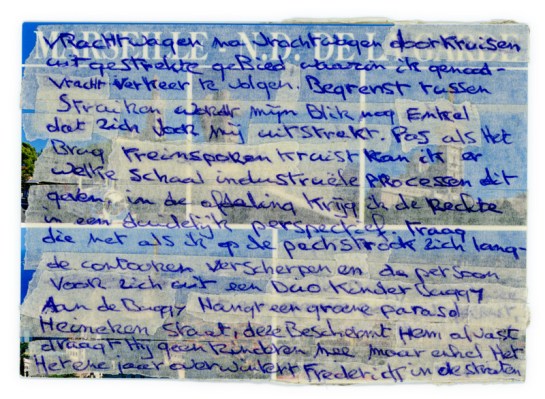 MARSEILLE - N.D. DE LA GARDE
Vrachtwagen na vrachtwagen doorkruisen
uitgestrekte gebied waaron ik genood-
vracht verkeer te volgen. Begrenst tussen
Struiken wordt mijn Blik nog Enkel
dat zich voor mij uitstrekt. Pas als Het
Brug Treinsporen kruist kan ik er
welke schaal industriële processen dit
in de afdaling Krijg ik de Rechte
in een duidelijk perspectief. Traag
die net als ik op de pechstrook zich lang-
de contouren verscherpen en de persoon
voor zich uit een Duo Kinder Buggy
Aan de Buggy Hangt een groene parasol
Heineken Staat, deze Beschermt Hem alvast
draagt Hij geen kinderen mee maar enkel Het
Het ene jaar overwintert Frederick in de straten